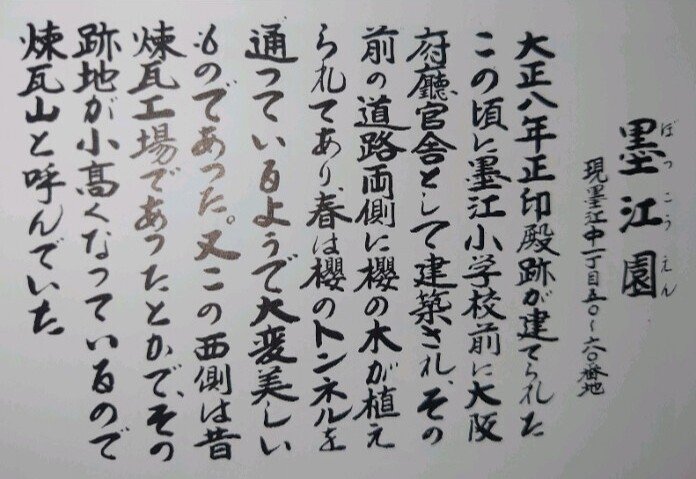 墨江園
ぼっこうえん
現墨江中一丁目五〇~六〇番地
大正八年正印殿跡が建てられた
この頃に墨江小学校前に大阪
府廳官舎として建築され、その
前の道路両側に櫻の木が植え
られてあり、春は櫻のトンネルを
通っているようで大変美しい
ものであった。又この西側は昔
煉瓦工場であったとかで、その
跡地が小高くなっているので
煉瓦山と呼んでいた